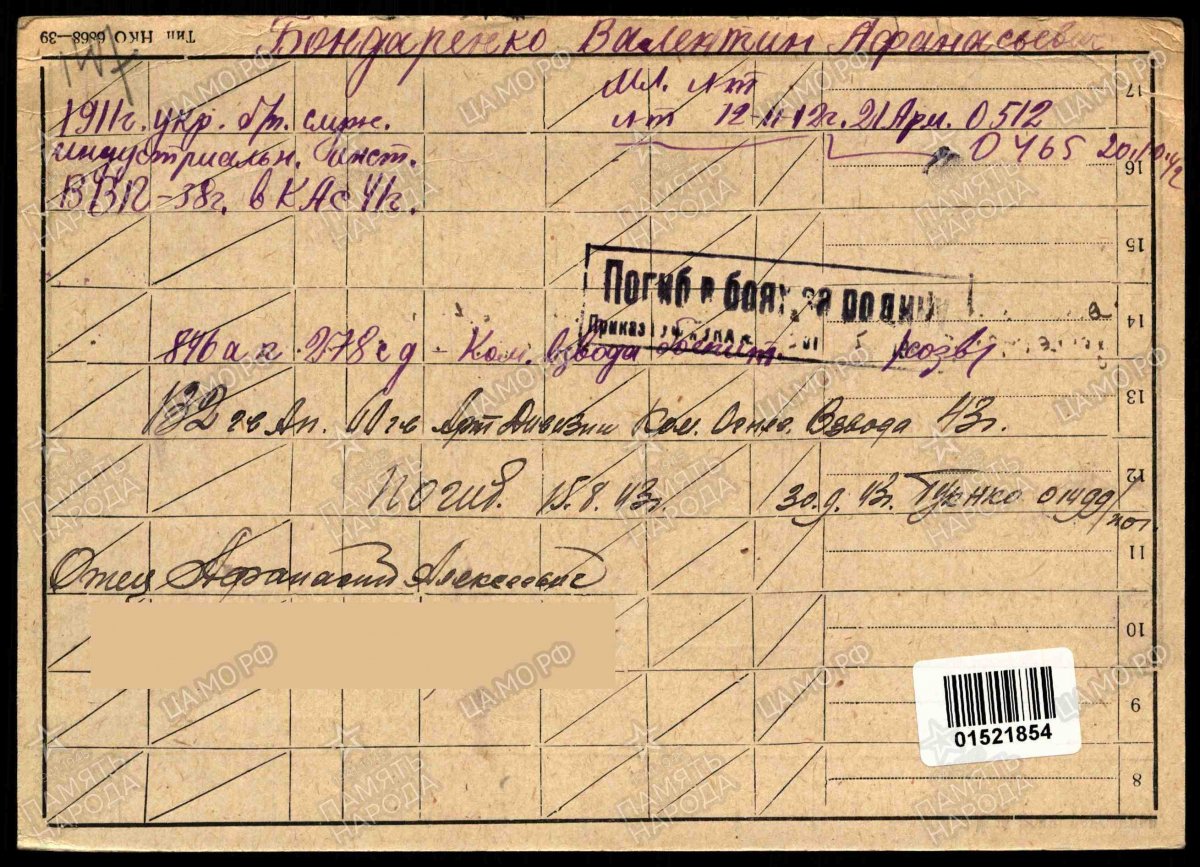 Тип НКО 6868—39
Бондаренко Валентин Афанасьевич
Мл. лт
17
1911г. укр. б/п. служ.
лт 12-11-42г. 21 Арм. 0512
индустриальн. инст.
0465 20.10.42
16
ВВП-38г. в КА с 41г.
15
Погиб в боях за Родину
Приказ
14
846 ап 278 сд - Ком. взвода
132 гв Ап. 60 гв Арт Дивизии Ком. Огнев. Взвода 43г.
13
12
Погиб. 15.8.43г. 30.9.43г.
11
Отец Афанасий Алексеевич
10
9
8
01521854
ЦАМО.РФ
ПАМЯТЬ НАРОДА